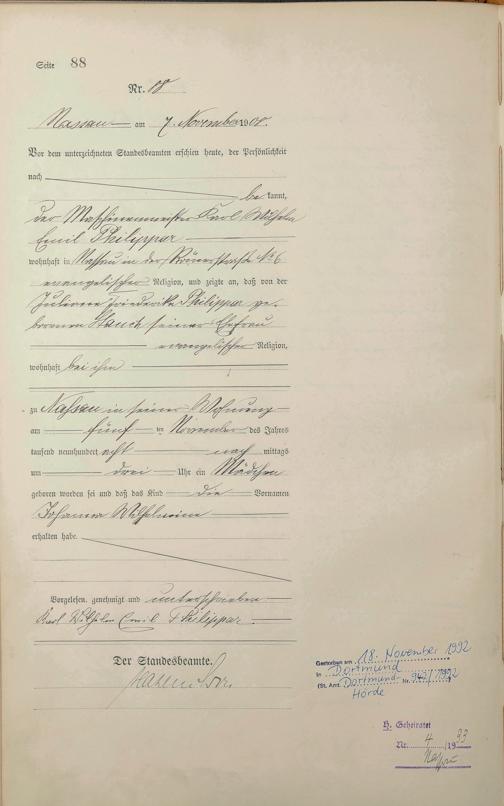 Seite 88
Nr. 88
Nassau am 7. November 1908.
Vor dem unterzeichneten Standesbeamten erschien heute, der Persönlichkeit
nach
be kannt,
der Maschinenmeister Karl Wilhelm
Emil Philippar
wohnhaft in Nassau in der Römerstraße No 6
evangelischer Religion, und zeigte an, daß von der
Friederike Philippar ge-
borenen Stauch seiner Ehefrau
evangelischer Religion,
wohnhaft bei ihm
zu Nassau in seiner Wohnung
am fünf ten November des Jahres
tausend neunhundert acht nach mittags
um drei Uhr ein Mädchen
geboren worden sei und daß das Kind die Vornamen
Johanna Wilhelmine
erhalten habe.
Vorgelesen, genehmigt und unterschrieben
Karl Wilhelm Emil Philippar.
Der Standesbeamte.
Gestorben am 18. November 1992
in Dortmund
(St. Amt Dortmund- Nr. 943/1992
Hörde
H. Geheiratet
Nr. 4 /1933
Nassau